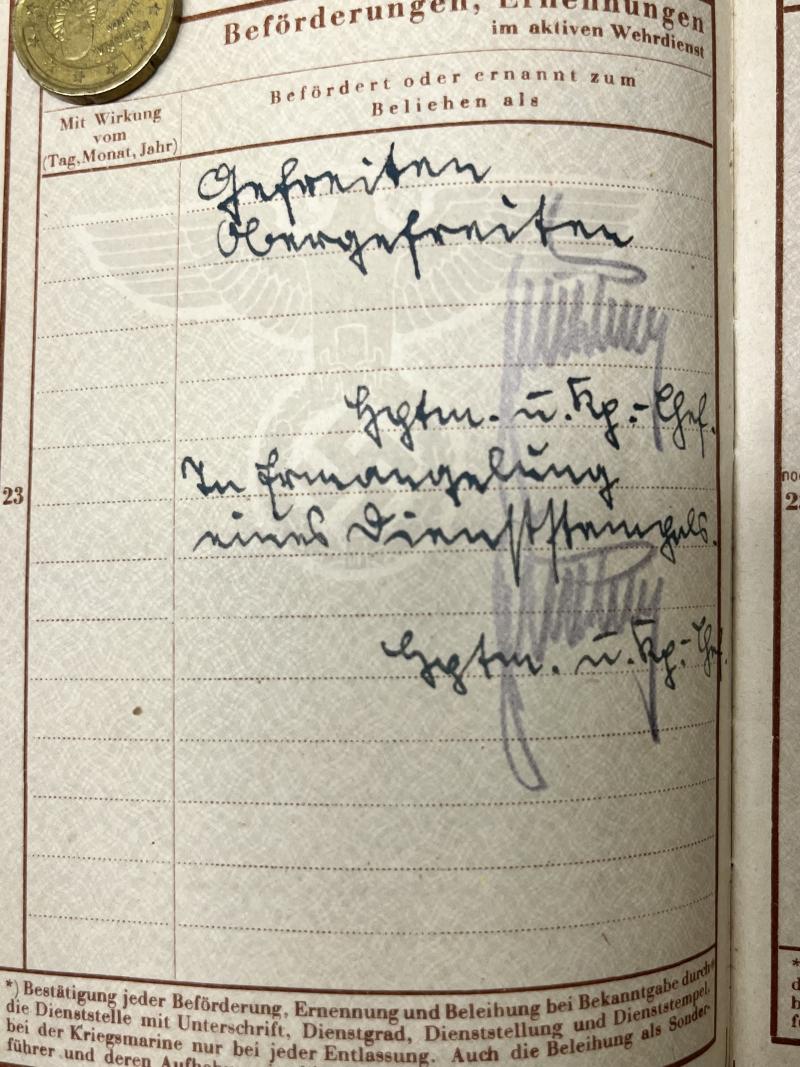 Beförderungen, Ernennungen
im aktiven Wehrdienst
Mit Wirkung
vom
(Tag, Monat, Jahr)
Befördert oder ernannt zum
Beliehen als
Gefreiten
Obergefreiten
Hptm. u. Kp.-Chef.
In Ermangelung
eines Dienststempels.
Hptm. u. Kp.-Chef.
23
*) Bestätigung jeder Beförderung, Ernennung und Beleihung bei Bekanntgabe durch
die Dienststelle mit Unterschrift, Dienstgrad, Dienststellung und Dienststempel,
bei der Kriegsmarine nur bei jeder Entlassung. Auch die Beleihung als Sonder-
führer und deren